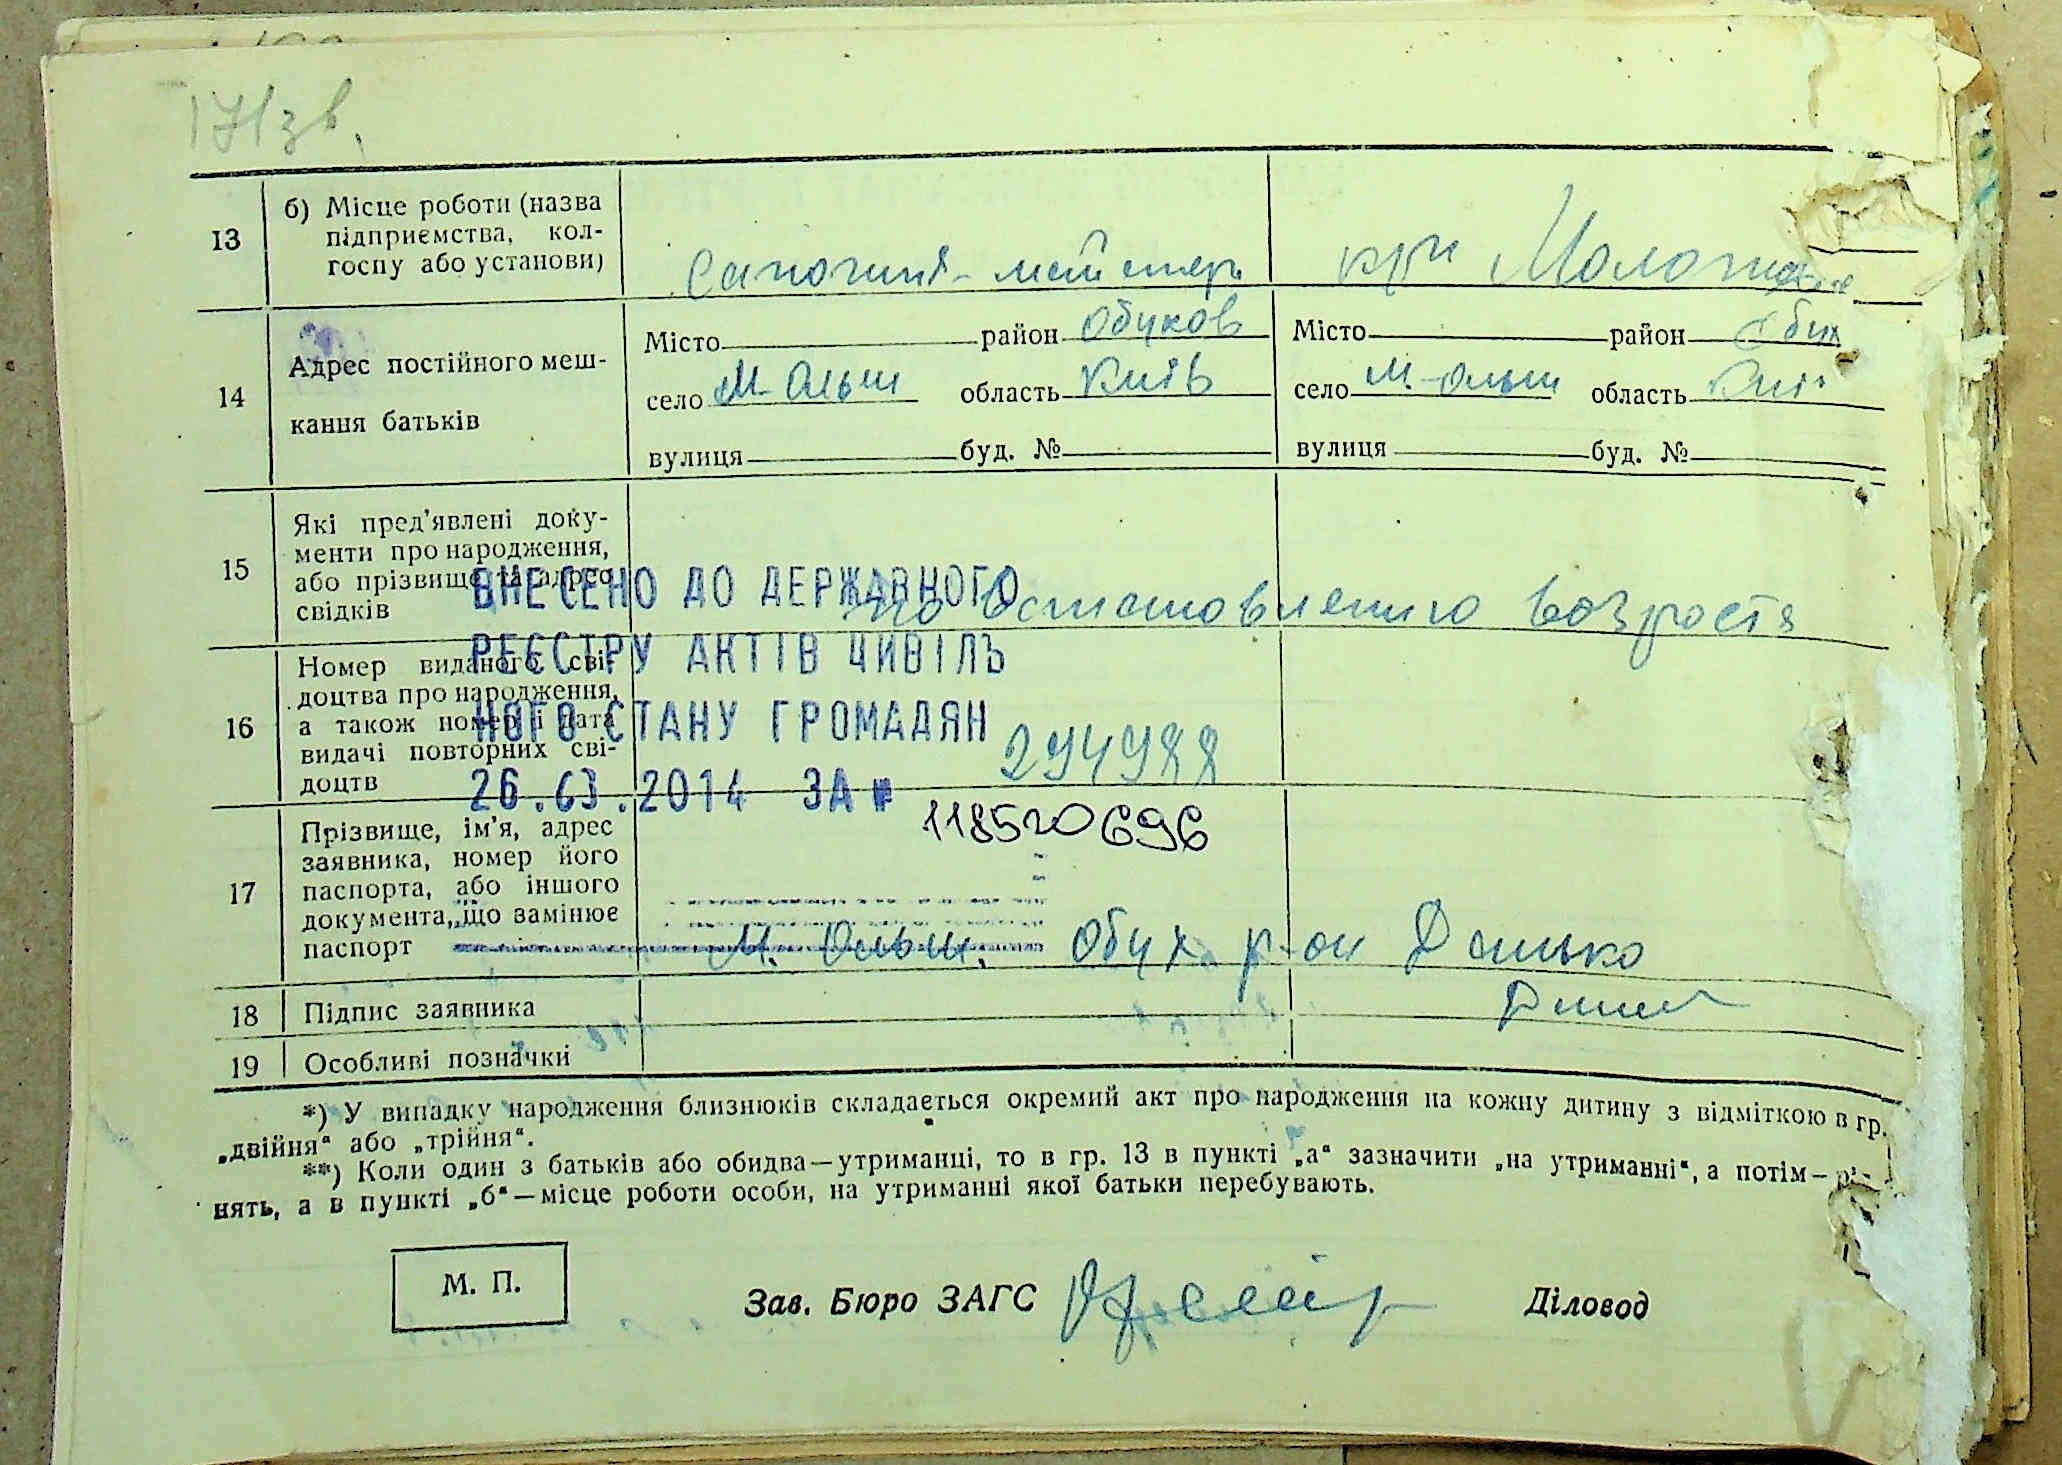 171 зв.
13 б) Місце роботи (назва
підприємства, кол-
госпу або установи)
14 Адрес постійного меш-
кання батьків
Місто район Обуков Місто район Обух
село М-Ольш область Київ село М-Ольш область Київ
вулиця буд. № вулиця буд. №
15 Які пред'явлені доку-
менти про народження,
або прізвище та адрес
свідків
по встановлению возроста
ВНЕСЕНО ДО ДЕРЖАВНОГО
РЕЄСТРУ АКТІВ ЦИВІЛЬ
НОГО СТАНУ ГРОМАДЯН
26.03.2014 ЗА №
118520696
16 Номер виданого сві-
доцтва про народження,
а також номер і дата
видачі повторних сві-
доцтв
294988
17 Прізвище, ім'я, адрес
заявника, номер його
паспорта, або іншого
документа, що замінює
паспорт
М. Ольш. Обух. р-он Данько
18 Підпис заявника
19 Особливі позначки
*) У випадку народження близнюків складається окремий акт про народження на кожну дитину з відміткою в гр.
„двійня“ або „трійня“.
**) Коли один з батьків або обидва—утриманці, то в гр. 13 в пункті „а“ зазначити „на утриманні“, а потім—рі-
нять, а в пункті „б“—місце роботи особи, на утриманні якої батьки перебувають.
М. П.
Зав. Бюро ЗАГС Діловод